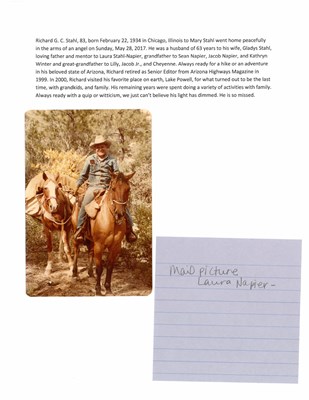 Richard G. C. Stahl, 83, born February 22, 1934 in Chicago, Illinois to Mary Stahl went home peacefully
in the arms of an angel on Sunday, May 28, 2017. He was a husband of 63 years to his wife, Gladys Stahl,
loving father and mentor to Laura Stahl-Napier, grandfather to Sean Napier, Jacob Napier, and Kathryn
Winter and great-grandfather to Lilly, Jacob Jr., and Cheyenne. Always ready for a hike or an adventure
in his beloved state of Arizona, Richard retired as Senior Editor from Arizona Highways Magazine in
1999. In 2000, Richard visited his favorite place on earth, Lake Powell, for what turned out to be the last
time, with grandkids, and family. His remaining years were spent doing a variety of activities with family.
Always ready with a quip or witticism, we just can't believe his light has dimmed. He is so missed.
Mail picture
Laura Napier-